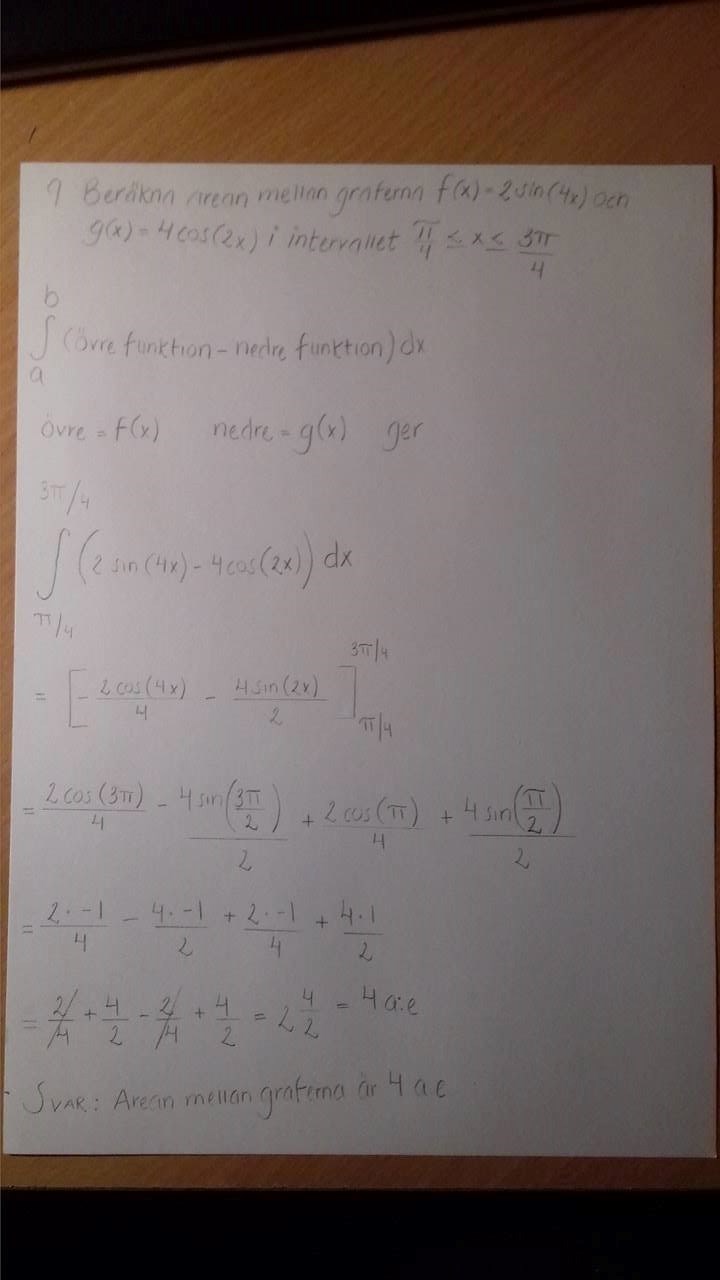 9 Beräkna arean mellan graferna f(x) = 2 sin(4x) och
g(x) = 4 cos(2x) i intervallet π/4 ≤ x ≤ 3π/4
b
∫ (övre funktion - nedre funktion) dx
a
övre = f(x) nedre = g(x) ger
3π/4
∫ (2 sin(4x) - 4 cos(2x)) dx
π/4
= [- 2cos(4x)/4 - 4sin(2x)/2] 3π/4 π/4
= 2cos(3π)/4 - 4 sin(3π/2)/2 + 2 cos(π)/4 + 4 sin(π/2)/2
= 2·-1/4 - 4·-1/2 + 2·-1/4 + 4·1/2
= 2/4 + 4/2 - 2/4 + 4/2 = 2 4/2 = 4 a.e
SVAR: Arean mellan graferna är 4 a e